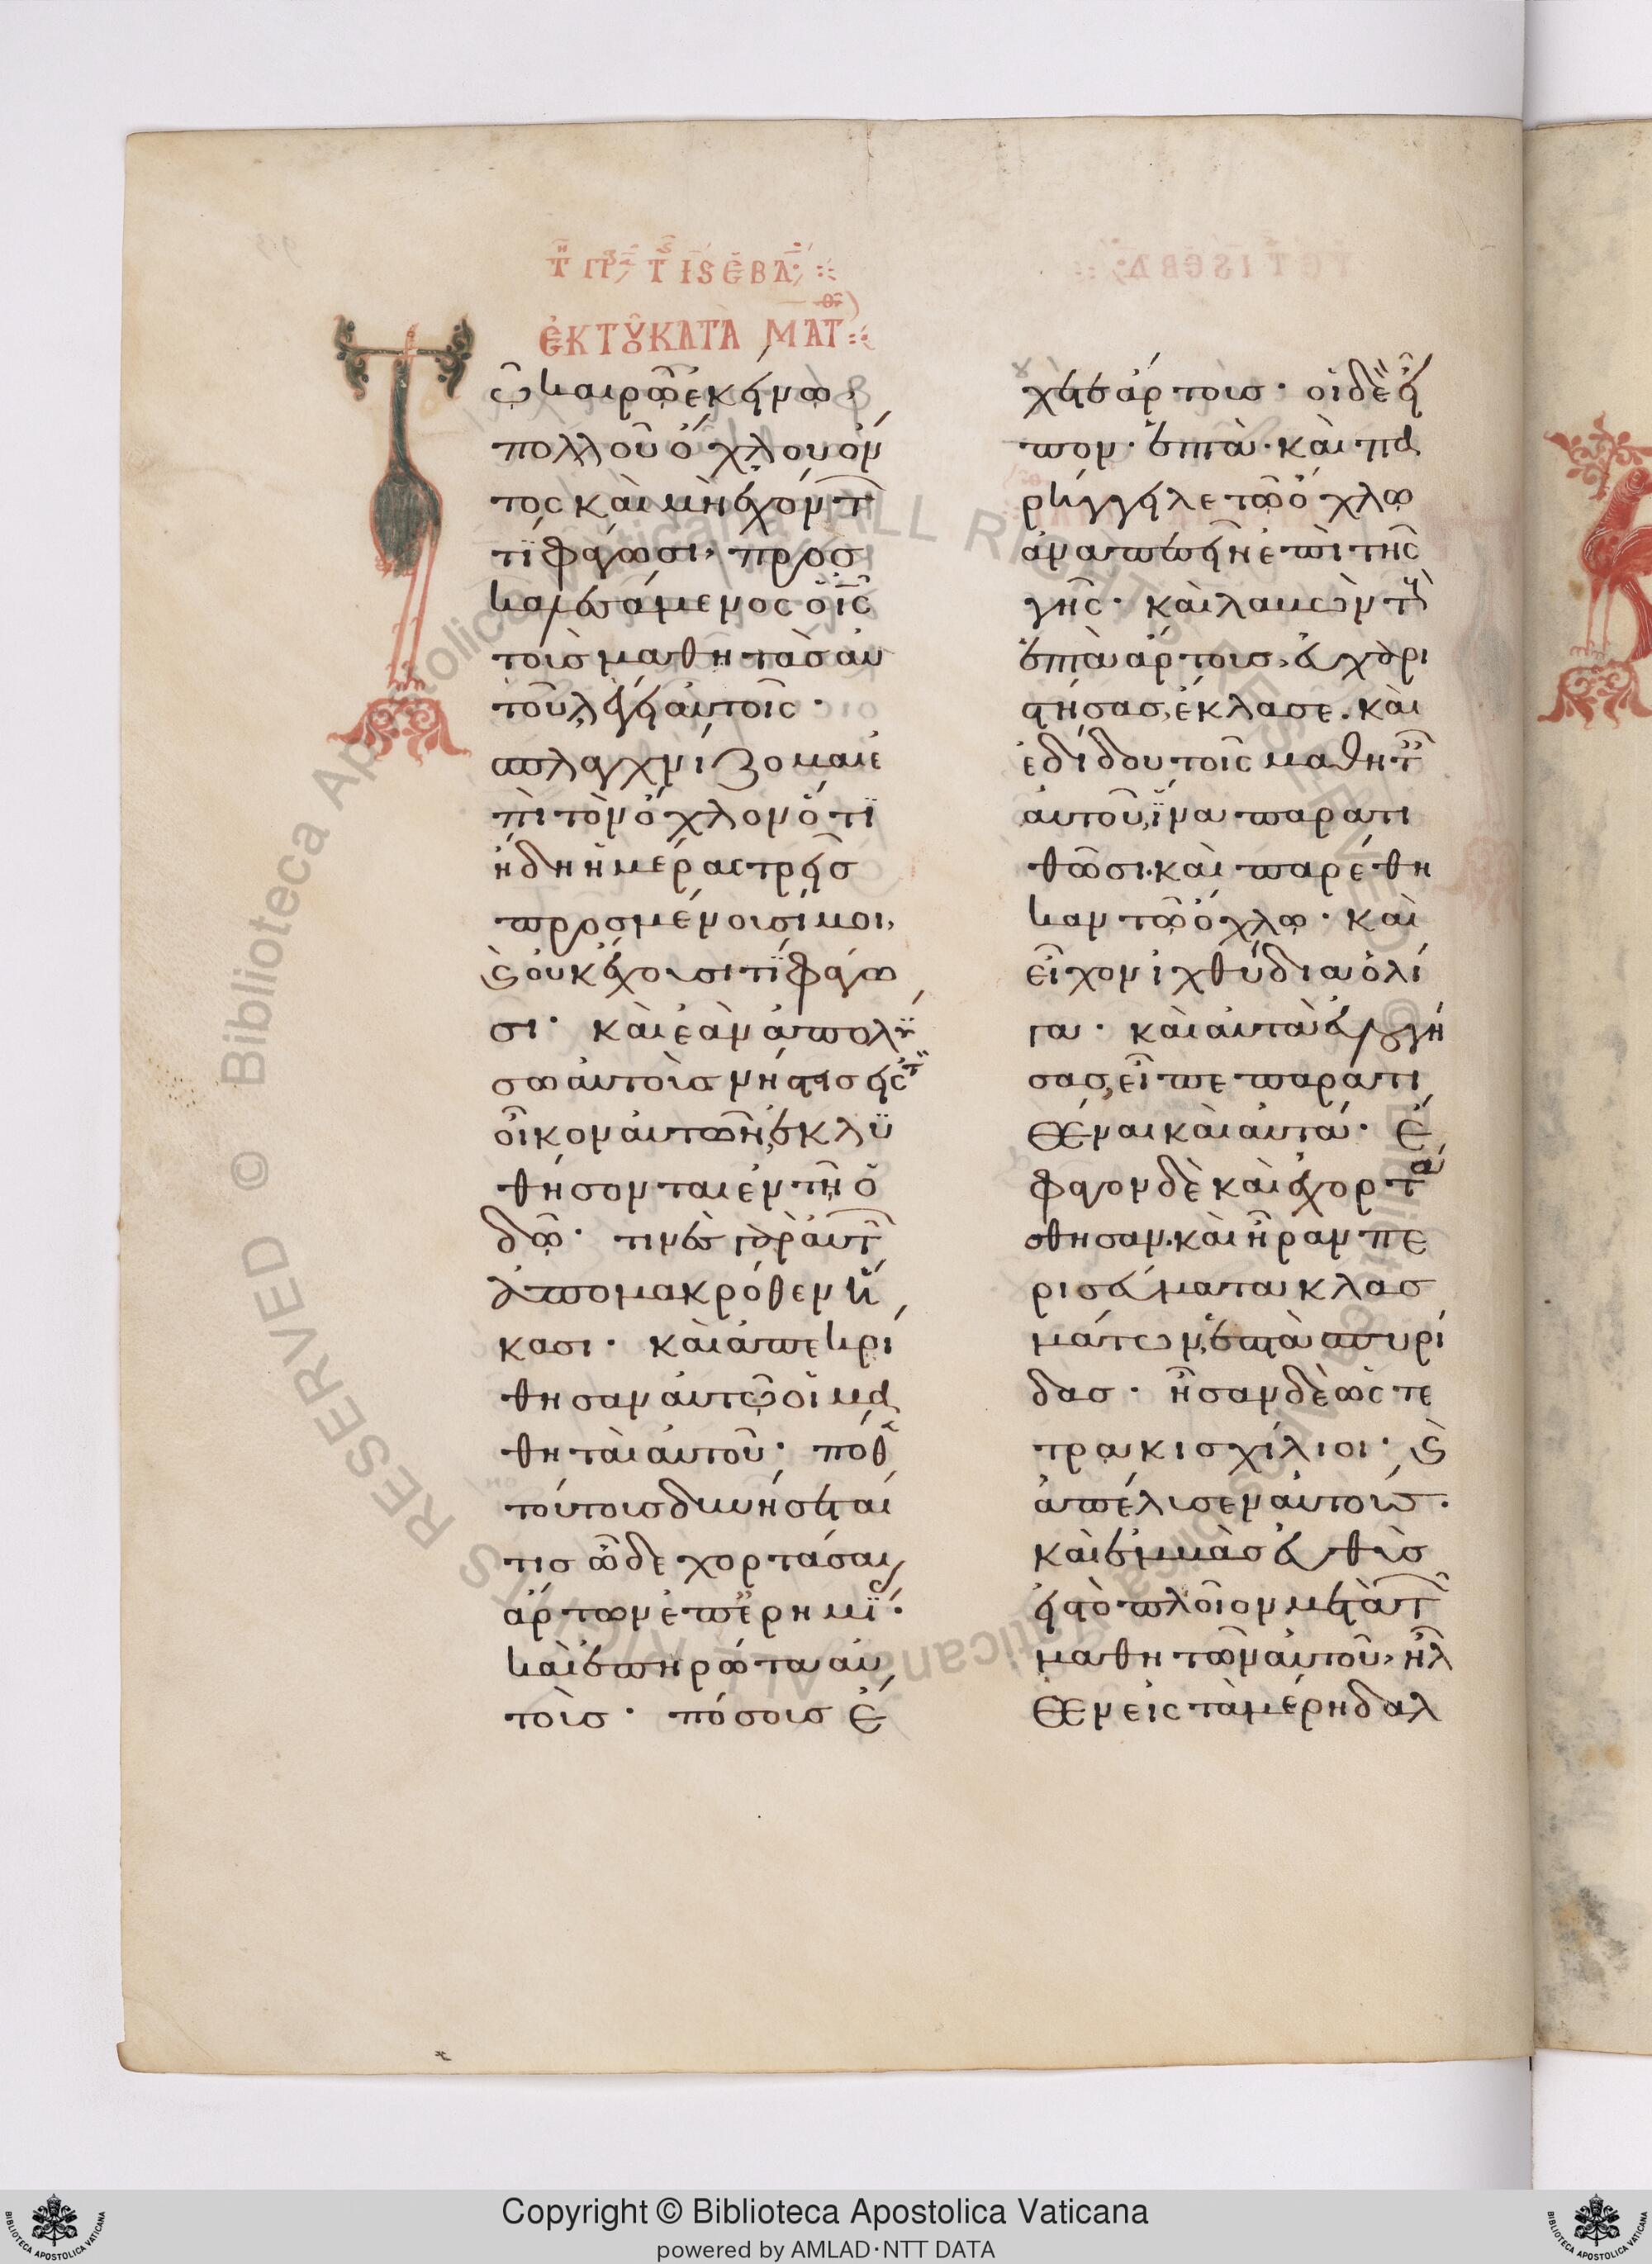 Τῆ Πρ, Τ ΙϚ ἙΒΔ
ἘΚ ΤΟῦ ΚΑΤᾺ ΜΑΤΘ
Τῶ καιρῶ ἐκείνω
πολλοῦ ὄχλου ὄν
τος καὶ μὴ ἐχόντ
τί φάγωσι, προσ
καλεσάμενος ὁ ις
τοὺς μαθητὰσ αὐ
τοῦ λέγει αὐτοῖς ·
σπλαγχνίζομαι ἐ
πὶ τὸν ὄχλον ὅτι
ἤδη ἡμέραι τρεῖσ
προσμένουσί μοι,
καὶ οὐκ ἔχουσι τί φάγω
σι · καὶ ἐὰν ἀπολύ
σω αὐτοὺς νήστισ εἰς τ
οἶκον αὐτῶν, ἐκλυ
θήσονται ἐν τῆ ὁ
δῶ · τινὲς γὰρ αὐτ
ἀπομακρόθεν ἥ
κασι · καὶ ἀπεκρί
θησαν αὐτῶ οἱ μα
θηταὶ αὐτοῦ · πόθ
τούτουσ δυνήσεται
τισ ὧδε χορτάσαι
ἄρτων ἐπ' ἐρημί ·
καὶ ἐπηρώτα αὐ
τοὺσ · πόσουσ ἔ
χετε ἄρτουσ · οἱ δὲ εἶ
πον · ἑπτά · καὶ πα
ρήγγειλε τῶ ὄχλω
ἀναπεσεῖν ἐπὶ τῆς
γῆς · καὶ λαβὼν τοὺ
ἑπτὰ ἄρτους, εὐχαρι
στήσας, ἔκλασε. καὶ
ἐδίδου τοῖς μαθητ
αὐτοῦ, ἵνα παρατι
θῶσι. καὶ παρέθη
καν τῶ ὄχλω · καὶ
εἶχον ἰχθύδια ὀλί
γα · καὶ αὐτὰ εὐλογή
σασ, εἶπε παρατι
θέναι καὶ αὐτά · ἔ
φαγον δὲ καὶ ἐχορτά
σθησαν. καὶ ἦραν πε
ρισεύματα κλασ
μάτων, ἑπτὰ σπυρί
δασ · ἦσαν δὲ ὡς τε
τρακισχίλιοι · καὶ
ἀπέλυσεν αὐτούς ·
καὶ ἐμβὰσ εὐθὺσ
εἰσ τὸ πλοῖον μετὰ τ
μαθητῶν αὐτοῦ, ἦλ
θεν εἰς τὰ μέρη δαλ
Copyright © Biblioteca Apostolica Vaticana
powered by AMLAD·NTT DATA